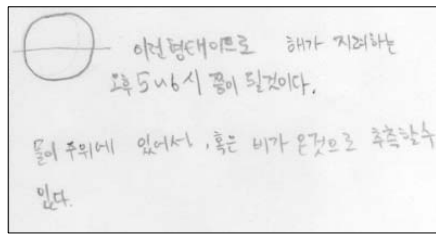 이런형태이므로 해가 지려하는
오후 5~6시 쯤이 될것이다.
물이 주위에 있어서, 혹은 비가 온것으로 추측할수
있다.